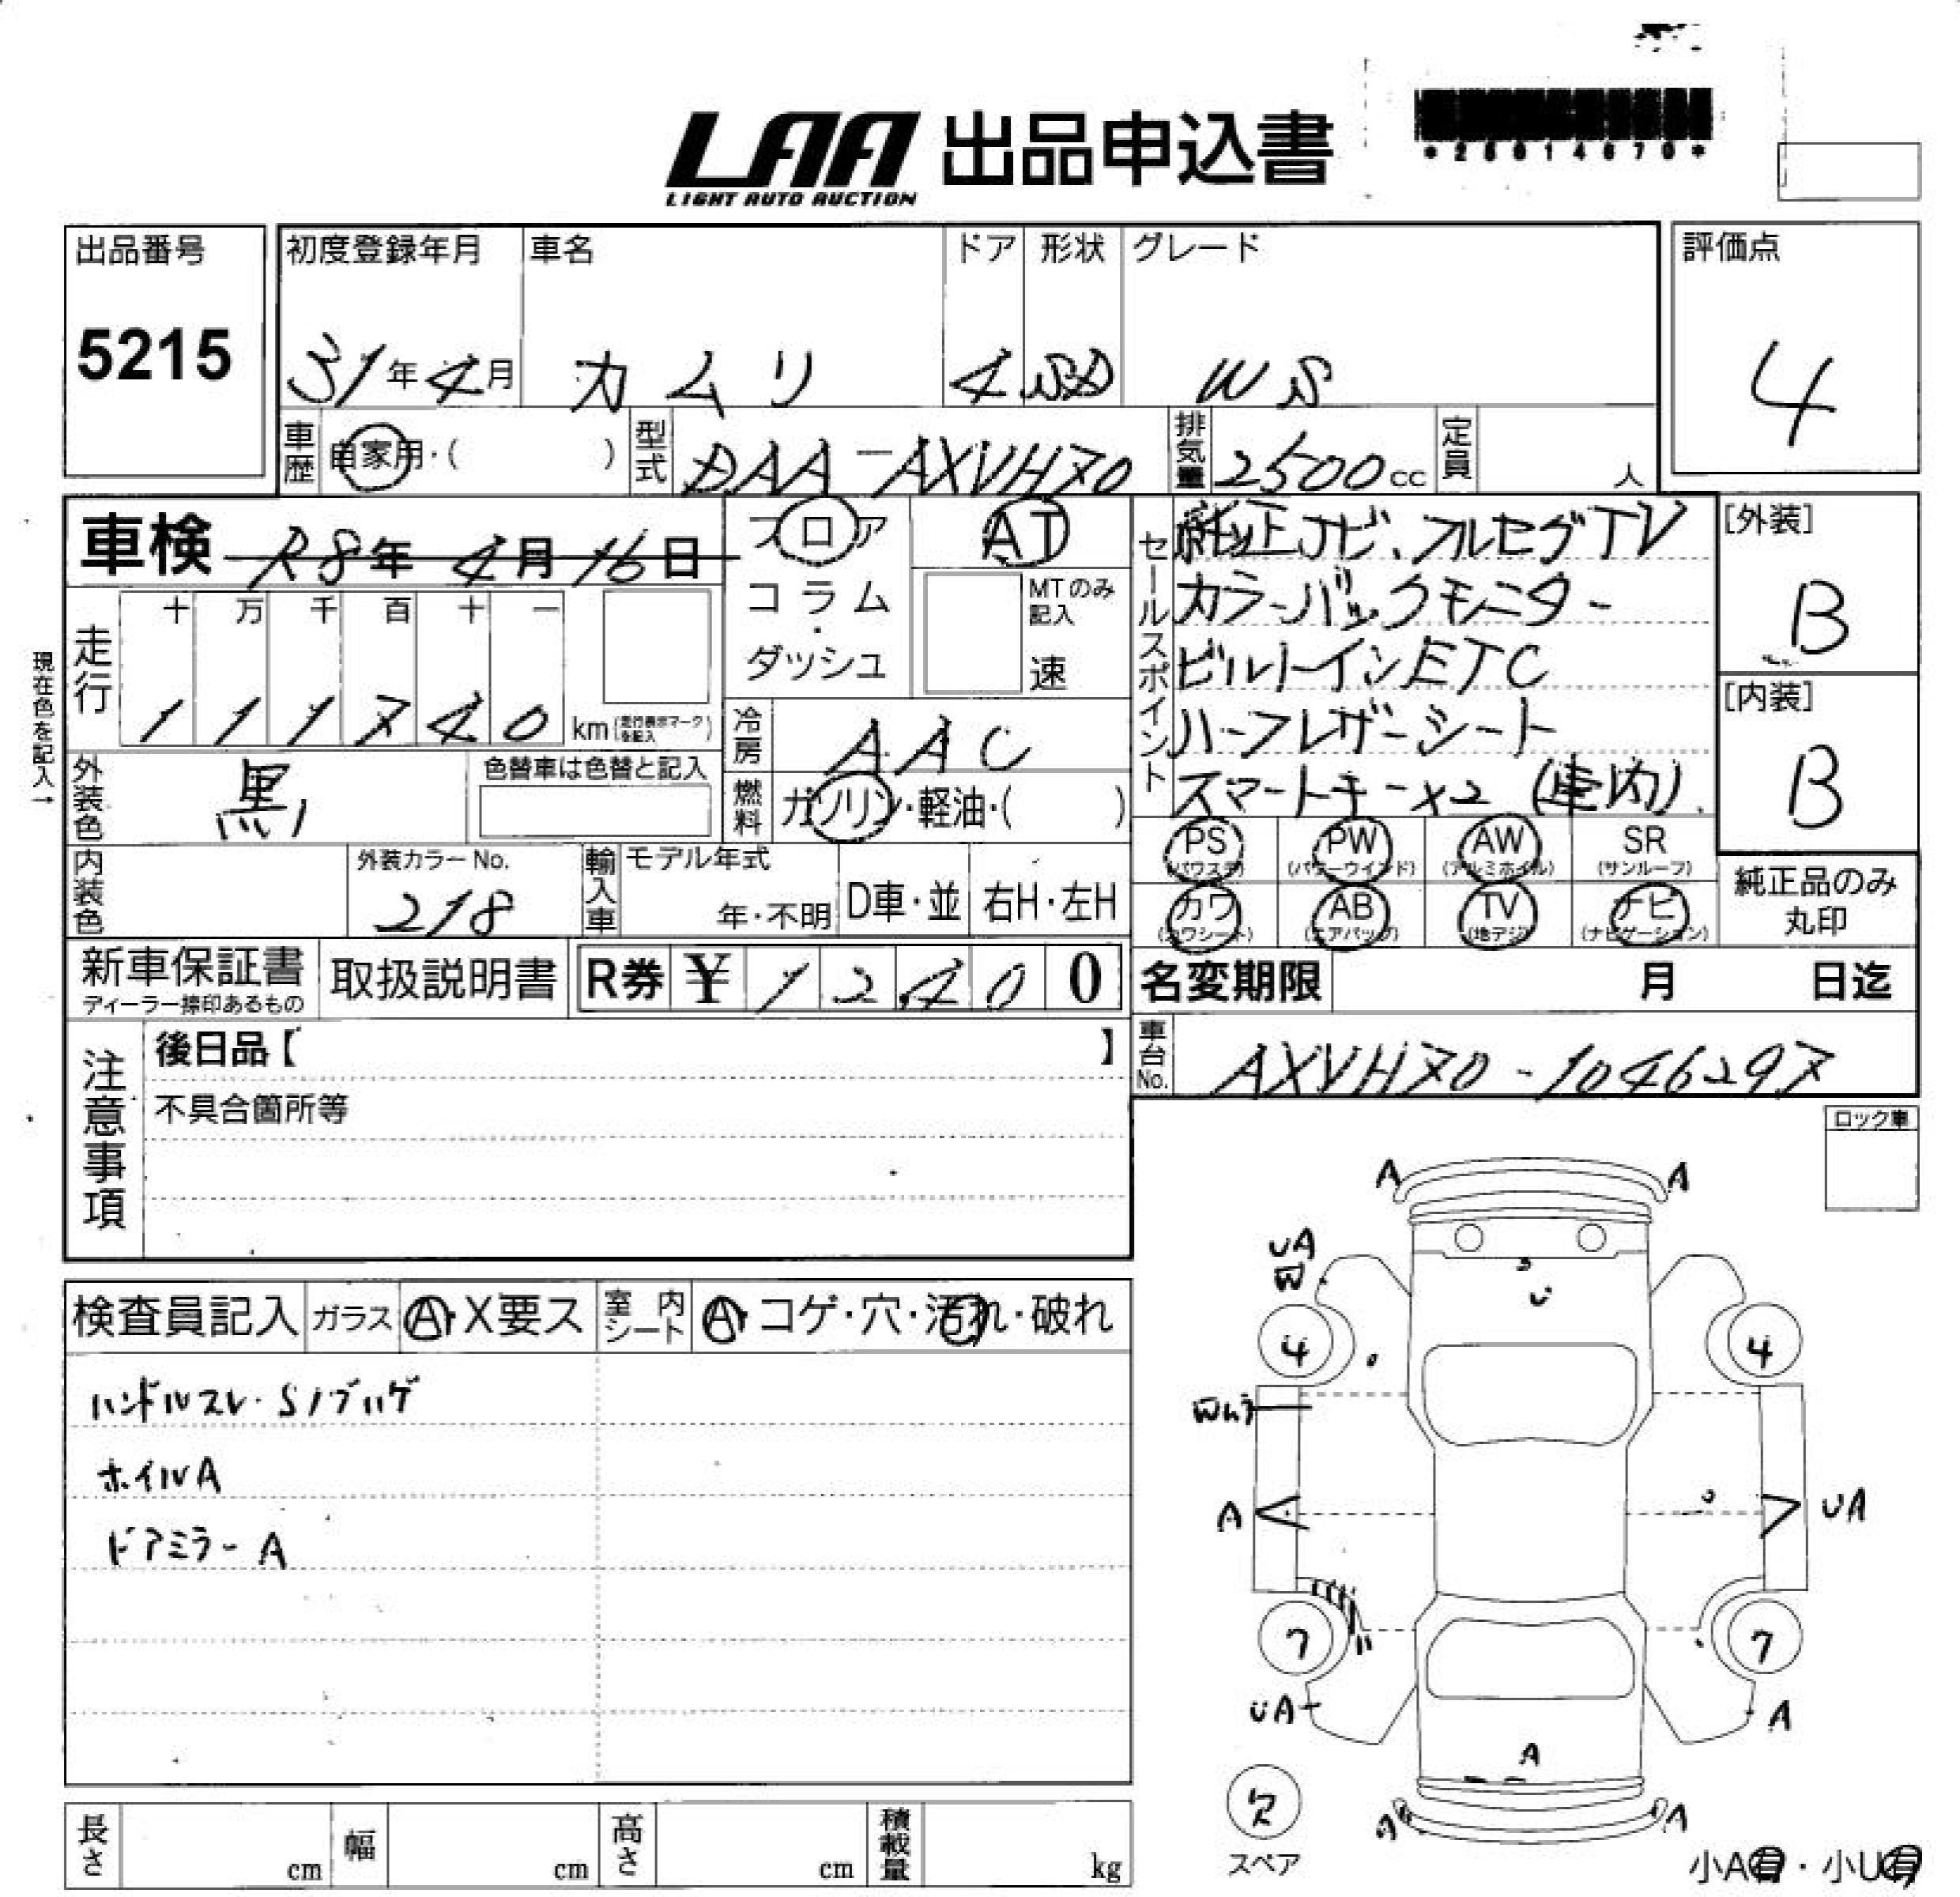 LAA 出品申込書
LIGHT AUTO AUCTION
出品番号
5215
初度登録年月 車名 ドア 形状 グレード
31年4月 カムリ 4 SD WS
評価点
4
車歴 自家用・( ) 型式 DAA-AXVH70 排気量 2500cc 定員 人
車検 R8年 4月 16日
フロア AT
コラム・ダッシュ
MTのみ記入
速
セールスポイント
純正ナビ、フルセグTV
カラーバックモニター
ビルトインETC
ハーフレザーシート
スマートキー×2 (車内)
[外装]
B
[内装]
B
現在色を記入→
走行
十 万 千 百 十 一
1 1 1 7 4 0 km (走行表示マークを記入)
冷房 AAC
外装色 黒 色替車は色替と記入
燃料 ガソリン・軽油・( )
PS (パワステ) PW (パワーウインド) AW (アルミホイル) SR (サンルーフ)
カワ (カワシート) AB (エアバッグ) TV (地デジ) ナビ (ナビゲーション)
純正品のみ
丸印
内装色 外装カラーNo. 218
輸入車 モデル年式 年・不明 D車・並 右H・左H
新車保証書 ディーラー捺印あるもの 取扱説明書 R券 ¥ 1 2,4 0 0
名変期限 月 日迄
車台No. AXVH70-1046297
注意事項
後日品【 】
不具合箇所等
ロック車
検査員記入 ガラス A・X要ス 室内シート A・コゲ・穴・汚れ・破れ
ハンドルスレ・Sノブハゲ
ホイルA
ドアミラーA
A A
UA
W
U
4 4
A UA
7 7
UA A
A
A A
欠
スペア
小A有・小U有
長さ cm 幅 cm 高さ cm 積載量 kg